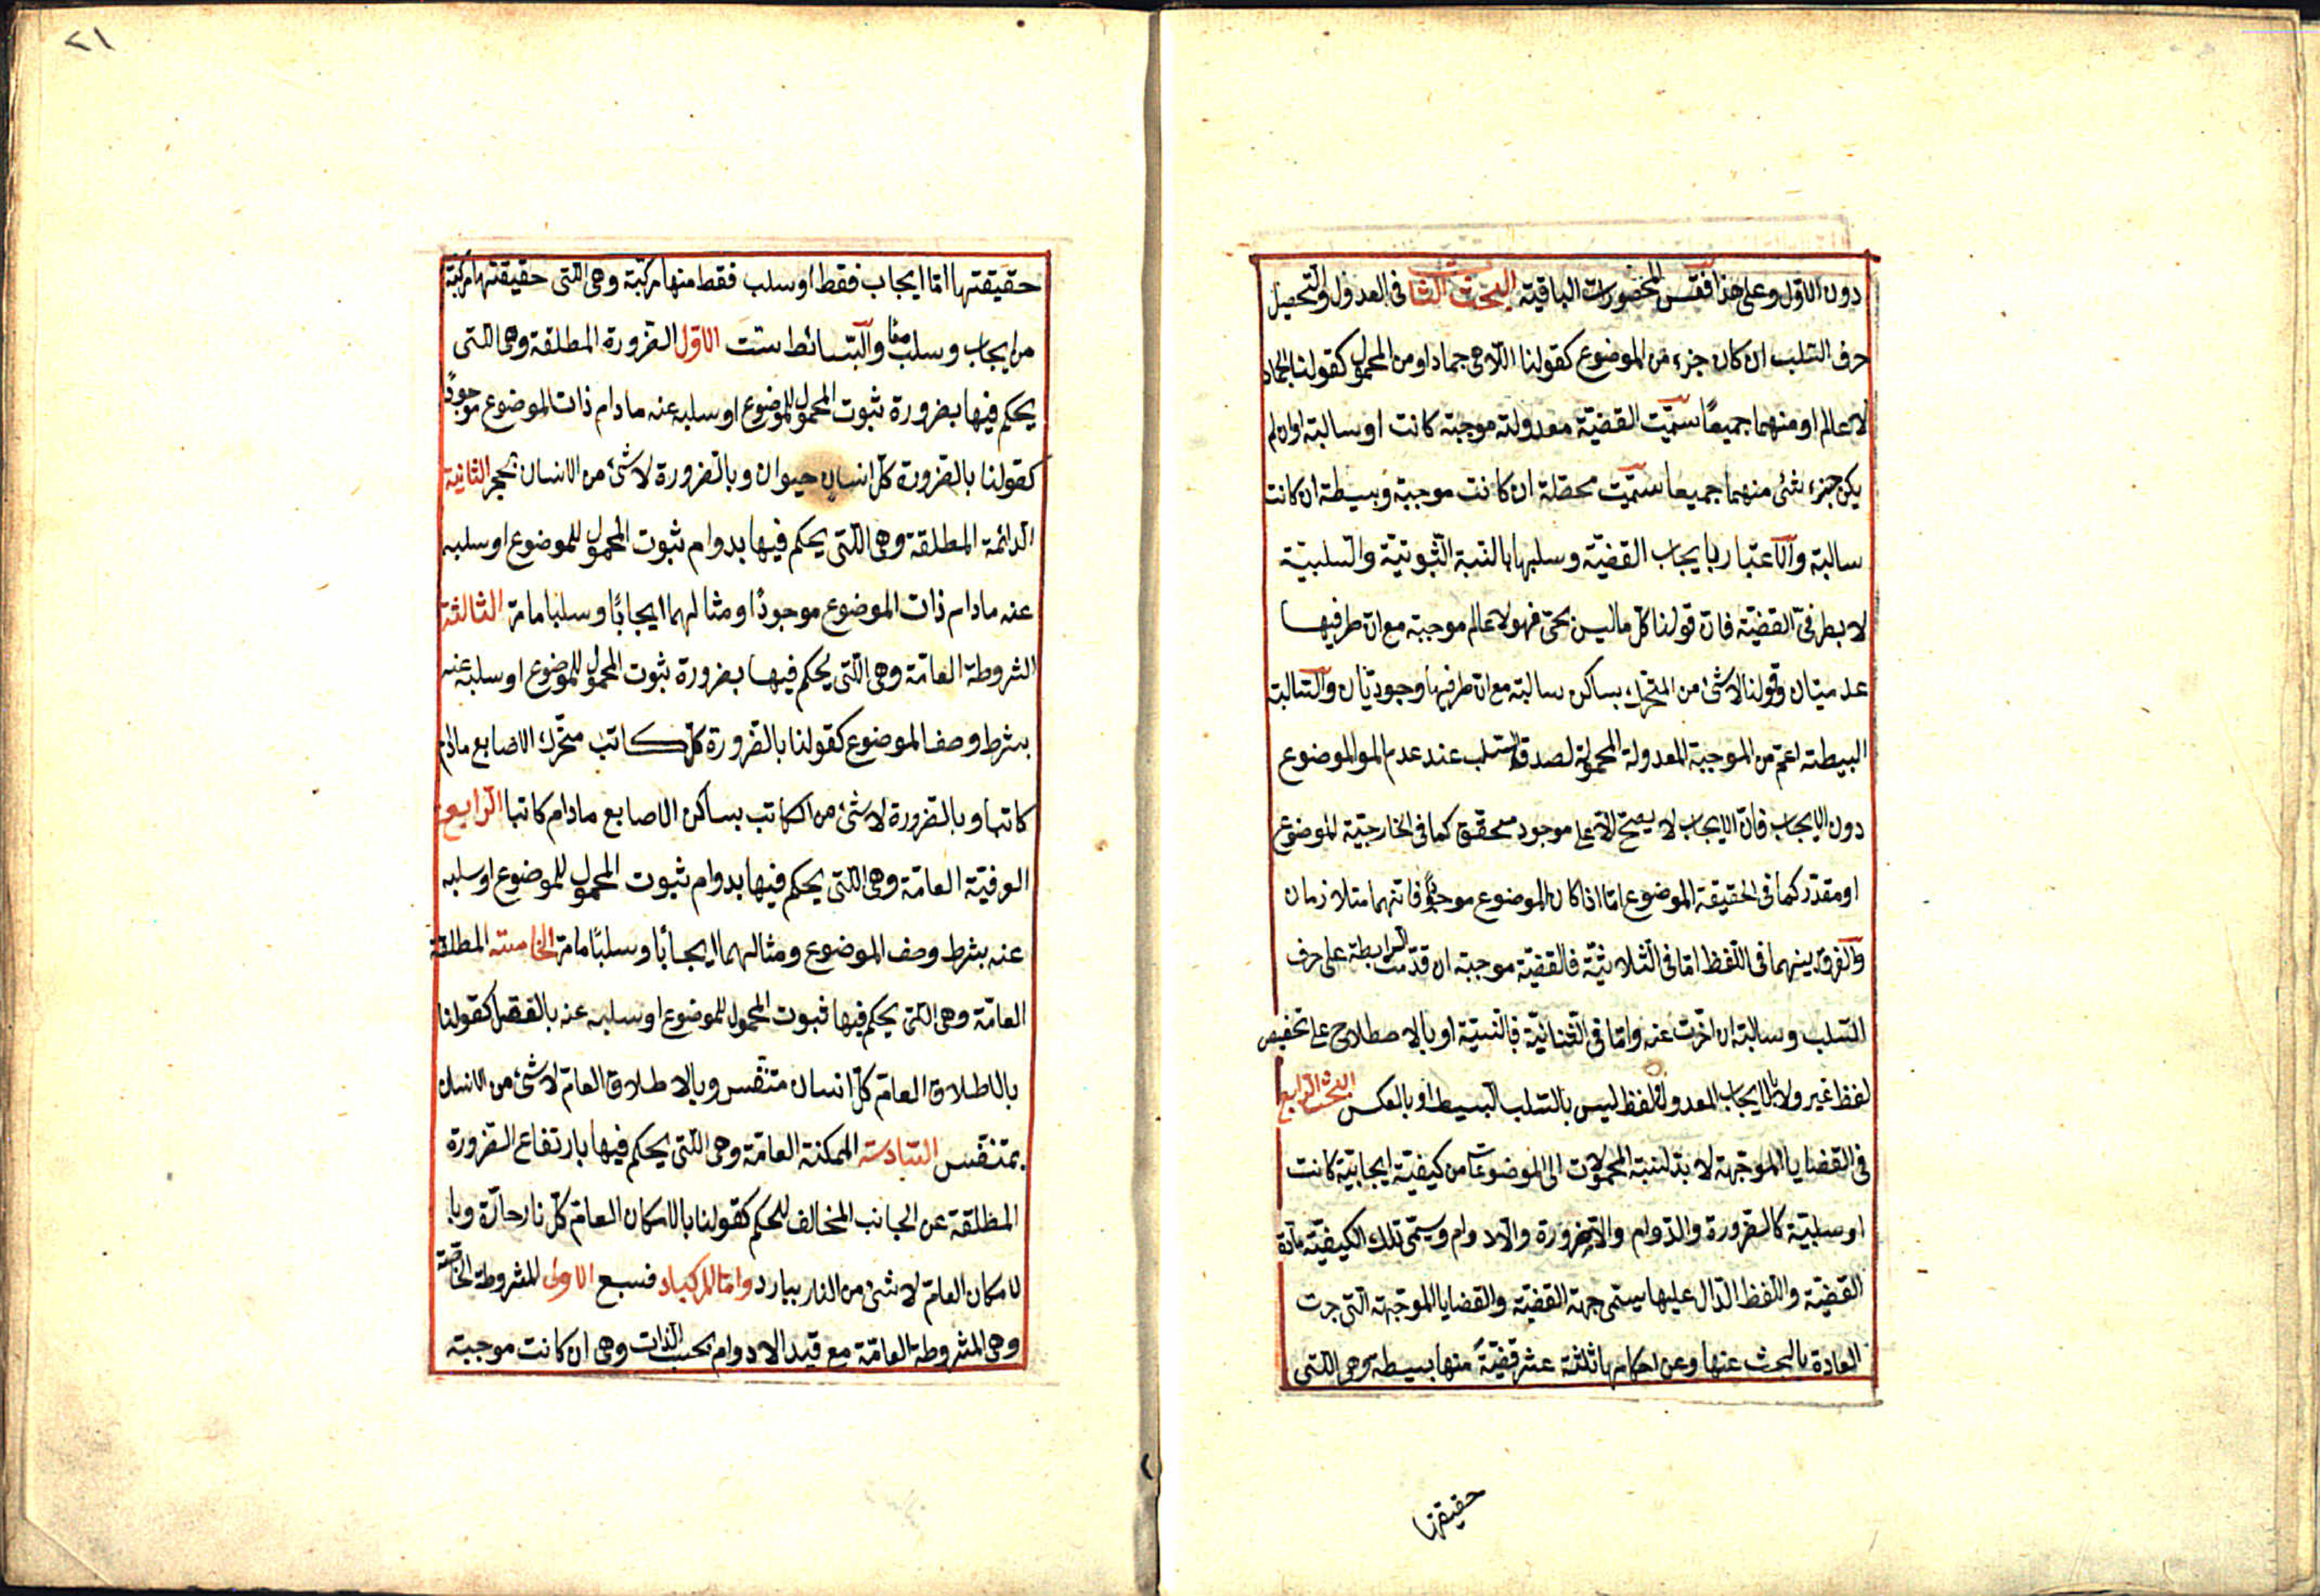 دون الاول وعلى هذا فقس المحصورات الباقية البحث الثالث فى العدول والتحصيل
حرف السلب ان كان جزء من الموضوع كقولنا اللاحى جماد او من المحمول كقولنا الجماد
لاعالم او منهما جميعًا سمّيت القضيّة معدولة موجبة كانت او سالبة اوان لم
يكن جزء شئ منهما جميعا سمّيت محصّلة ان كانت موجبة وبسيطة ان كانت
سالبة والاعتبار بايجاب القضيّة وسلبها بالنسبة الثبوتيّة والسلبيّة
لا بطرفىّ القضيّة فانّ قولنا كلّ ما ليس بحىّ فهو لا عالم موجبة مع انّ طرفيها
عدميّان وقولنا لاشئ من المتحرك بساكن سالبة مع انّ طرفيها وجوديّان والسالبة
البسيطة اعمّ من الموجبة المعدولة المحمولة لصدق السلب عند عدم المو الموضوع
دون الايجاب فانّ الايجاب لا يصحّ الّا على موجود محقق كما فى الخارجيّة الموضوع
او مقدّر كما فى الحقيقة الموضوع امّا اذا كان الموضوع موجودًا فانّهما متلازمان
والفرق بينهما فى اللفظ امّا فى الثلاثيّة فالقضيّة موجبة ان قدّمت الرابطة على حرف
السلب وسالبة ان اخّرت عنه وامّا فى الثنائيّة فبالنيّة او بالاصطلاح على تخصيص
لفظ غير ولا بالايجاب المعدول ولفظ ليس بالسلب البسيط او بالعكس البحث الرابع
فى القضايا الموجّهة لا بدّ لنسبة المحمولات الى الموضوعات من كيفيّة ايجابيّة كانت
او سلبيّة كالضرورة والدّوام واللاضرورة واللادوام وسيمّى تلك الكيفيّة مادّة
القضيّة واللفظ الدّال عليها يسمّى جهة القضيّة والقضايا الموجّهة الّتى جرت
العادة بالبحث عنها وعن احكامها ثلثة عشر قضيّة منها بسيطة وهى اللّتى
حقيقتها
٢١
حقيقتها امّا ايجاب فقط او سلب فقط منها مركبّة وهى اللّتى حقيقتها مركبّة
من ايجاب وسلب معًا والبسائط ستّ الاوّل الضرورة المطلقة وهى اللّتى
يحكم فيها بضرورة ثبوت المحمول للموضوع او سلبه عنه مادام ذات الموضوع موجودًا
كقولنا بالضرورة كلّ انسان حيوان وبالضرورة لاشئ من الانسان بحجر الثانية
الدائمة المطلقة وهى اللّتى يحكم فيها بدوام ثبوت المحمول للموضوع او سلبه
عنه مادام ذات الموضوع موجودًا ومثالهما ايجابًا وسلبا ما مرّ الثالثة
الشروطة العامّة وهى اللّتى يحكم فيها بضرورة ثبوت المحمول للموضوع او سلبه عنه
بشرط وصف الموضوع كقولنا بالضرورة كلّ كاتب متحّرك الاصابع مادام
كاتبا وبالضرورة لاشئ من الكاتب بساكن الاصابع مادام كاتبا الرابع
العرفيّة العامّة وهى اللّتى يحكم فيها بدوام ثبوت المحمول للموضوع او سلبه
عنه بشرط وصف الموضوع ومثالهما ايجابا وسلبًا ما مرّ الخامسة المطلقة
العامّة وهى اللّتى يحكم فيها ثبوت المحمول للموضوع او سلبه عنه بالفعل كقولنا
بالاطلاق العامّ كلّ انسان متنفّس وبالاطلاق العامّ لاشئ من الانسان
بمتنفّس السّادسة الممكنة العامّة وهى اللّتى يحكم فيها بارتفاع الضرورة
المطلقة عن الجانب المخالف للحكم كقولنا بالامكان العامّ كلّ نار حارّة وبا
لامكان العامّ لاشئ من النار ببارد وامّا المركبات فسبع الاولى المشروطة الخاصّة
وهى المشروطة العامّة مع قيد الادوام بحسب الذات وهى ان كانت موجبة